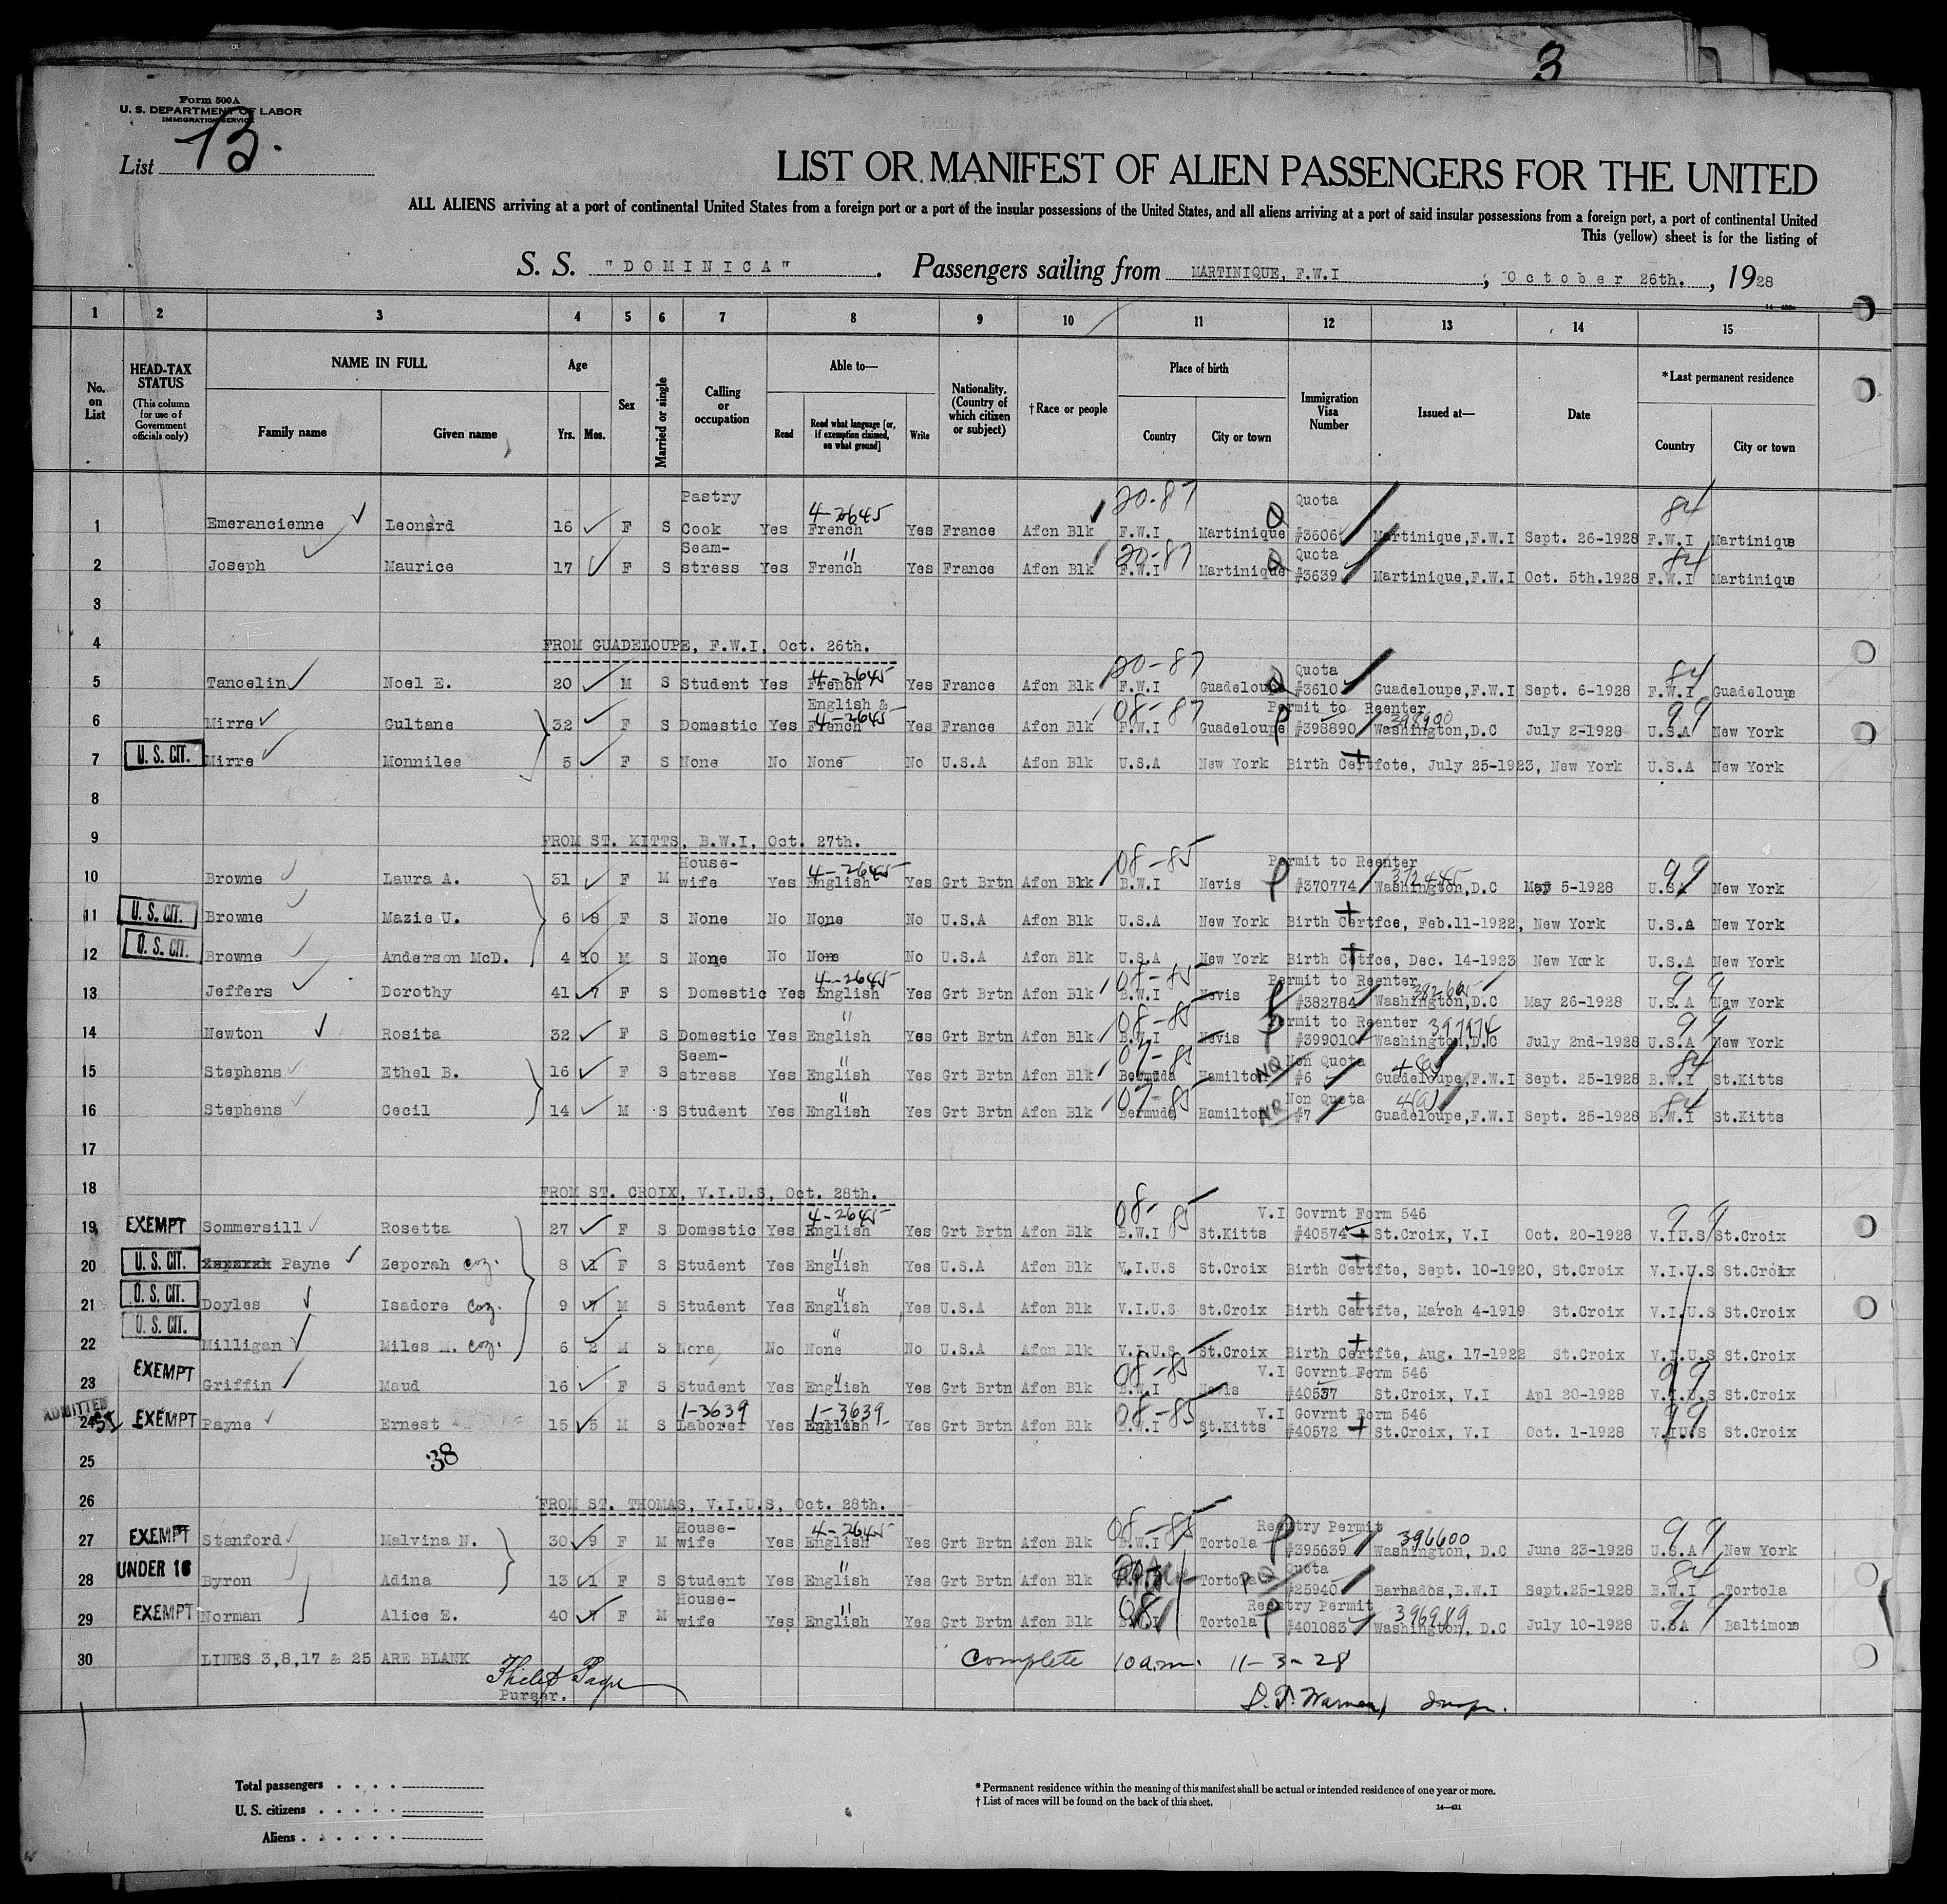 3
Form 500A
U. S. DEPARTMENT OF LABOR
IMMIGRATION SERVICE
List 13.
LIST OR MANIFEST OF ALIEN PASSENGERS FOR THE UNITED
ALL ALIENS arriving at a port of continental United States from a foreign port or a port of the insular possessions of the United States, and all aliens arriving at a port of said insular possessions from a foreign port, a port of continental United
This (yellow) sheet is for the listing of
S. S. "DOMINICA". Passengers sailing from MARTINIQUE, F.W.I, October 26th., 1928
1 2 3 4 5 6 7 8 9 10 11 12 13 14 15
No. on List
HEAD-TAX STATUS (This column for use of Government officials only)
NAME IN FULL Family name Given name
Age Yrs. Mos.
Sex
Married or single
Calling or occupation
Able to— Read Read what language [or, if exemption claimed, on what ground] Write
Nationality. (Country of which citizen or subject)
†Race or people
Place of birth Country City or town
Immigration Visa Number
Issued at—
Date
*Last permanent residence Country City or town
Pastry 4-2645 20-87 Quota 84
1 Emerancienne Leonard 16 F S Cook Yes French Yes France Afcn Blk F.W.I Martinique Q #3606 Martinique,F.W.I Sept. 26-1928 F.W.I Martinique
Seam- " 20-87 Quota 84
2 Joseph Maurice 17 F S stress Yes French Yes France Afcn Blk F.W.I Martinique Q #3639 Martinique,F.W.I Oct. 5th.1928 F.W.I Martinique
3
4 FROM GUADELOUPE, F.W.I, Oct. 26th.
4-2645 20-87 Quota 84
5 Tancelin Noel E. 20 M S Student Yes French Yes France Afcn Blk F.W.I Guadeloupe Q #3610 Guadeloupe,F.W.I Sept. 6-1928 F.W.I Guadeloupe
English & 4-2645 08-87 Permit to Reenter 398900 99
6 Mirre Gultane 32 F S Domestic Yes French Yes France Afcn Blk F.W.I Guadeloupe P #398890 Washington,D.C July 2-1928 U.S.A New York
7 U. S. CIT. Mirre Monnilee 5 F S None No None No U.S.A Afcn Blk U.S.A New York Birth Certfcte, July 25-1923, New York U.S.A New York
8
9 FROM ST. KITTS, B.W.I, Oct. 27th.
House- 4-2645 08-85 Permit to Reenter 99
10 Browne Laura A. 31 F M wife Yes English Yes Grt Brtn Afcn Blk B.W.I Nevis P #370774 Washington,D.C May 5-1928 U.S.A New York
11 U. S. CIT. Browne Mazie U. 6 8 F S None No None No U.S.A Afcn Blk U.S.A New York Birth Certfce, Feb.11-1922, New York U.S.A New York
12 U. S. CIT. Browne Anderson McD. 4 10 M S None No None No U.S.A Afcn Blk U.S.A New York Birth Cetfce, Dec. 14-1923 New York U.S.A New York
4-2645 08-85 Permit to Reenter 99
13 Jeffers Dorothy 41 7 F S Domestic Yes English Yes Grt Brtn Afcn Blk B.W.I Nevis P #382784 Washington,D.C May 26-1928 U.S.A New York
" 08-85 Permit to Reenter 397974 99
14 Newton Rosita 32 F S Domestic Yes English Yes Grt Brtn Afcn Blk B.W.I Nevis P #399010 Washington,D.C July 2nd-1928 U.S.A New York
Seam- " 07-85 Non Quota 4(a) 84
15 Stephens Ethel B. 16 F S stress Yes English Yes Grt Brtn Afcn Blk Bermuda Hamilton NQ #6 Guadeloupe,F.W.I Sept. 25-1928 B.W.I St.Kitts
" 07-85 Non Quota 4(a) 84
16 Stephens Cecil 14 M S Student Yes English Yes Grt Brtn Afcn Blk Bermuda Hamilton NQ #7 Guadeloupe,F.W.I Sept. 25-1928 B.W.I St.Kitts
17
18 FROM ST. CROIX, V.I.U.S, Oct. 28th.
4-2645 08-85 V.I Govrnt Form 546 99
19 EXEMPT Sommersill Rosetta 27 F S Domestic Yes English Yes Grt Brtn Afcn Blk B.W.I St.Kitts #40574 St.Croix, V.I Oct. 20-1928 V.IU.S St.Croix
20 U. S. CIT. Payne Zeporah coz. 8 1 F S Student Yes English " Yes U.S.A Afcn Blk V.I.U.S St.Croix Birth Certfte, Sept. 10-1920, St.Croix V.I.U.S St.Croix
21 U. S. CIT. Doyles Isadore coz. 9 7 M S Student Yes English " Yes U.S.A Afcn Blk V.I.U.S St.Croix Birth Certfte, March 4-1919 St.Croix V.I.U.S St.Croix
22 U. S. CIT. Milligan Miles M. coz. 6 2 M S None No None " No U.S.A Afcn Blk V.I.U.S St.Croix Birth Certfte, Aug. 17-1922 St.Croix V.I.U.S St.Croix
" 08-85 V.I Govrnt Form 546 99
23 EXEMPT Griffin Maud 16 F S Student Yes English Yes Grt Brtn Afcn Blk B.W.I Nevis #40537 St.Croix, V.I Apl 20-1928 V.I.U.S St.Croix
ADMITTED 1-3639 1-3639 08-85 V.I Govrnt Form 546 99
24 EXEMPT Payne Ernest 15 5 M S Laborer Yes English Yes Grt Brtn Afcn Blk B.W.I St.Kitts #40572 St.Croix, V.I Oct. 1-1928 V.IU.S St.Croix
25 38
26 FROM ST. THOMAS, V.I.U.S, Oct. 28th.
House- 4-2645 08-85 Reentry Permit 396600 99
27 EXEMPT Stanford Malvina N. 30 9 F M wife Yes English Yes Grt Brtn Afcn Blk B.W.I Tortola P #395639 Washington, D.C June 23-1928 U.S.A New York
UNDER 16 " Quota 84
28 Byron Adina 13 1 F S Student Yes English Yes Grt Brtn Afcn Blk Tortola PQ #25940 Barbados,B.W.I Sept.25-1928 B.W.I Tortola
House- " 08 Reentry Permit 396989 99
29 EXEMPT Norman Alice E. 40 7 F M wife Yes English Yes Grt Brtn Afcn Blk B.W.I Tortola P #401083 Washington, D.C July 10-1928 U.S.A Baltimore
30 LINES 3,8,17 & 25 ARE BLANK Complete 10 a.m. 11-3-28
Purser.
Total passengers . . . .
U. S. citizens . . . . .
Aliens . . . . . .
* Permanent residence within the meaning of this manifest shall be actual or intended residence of one year or more.
† List of races will be found on the back of this sheet.
14—431